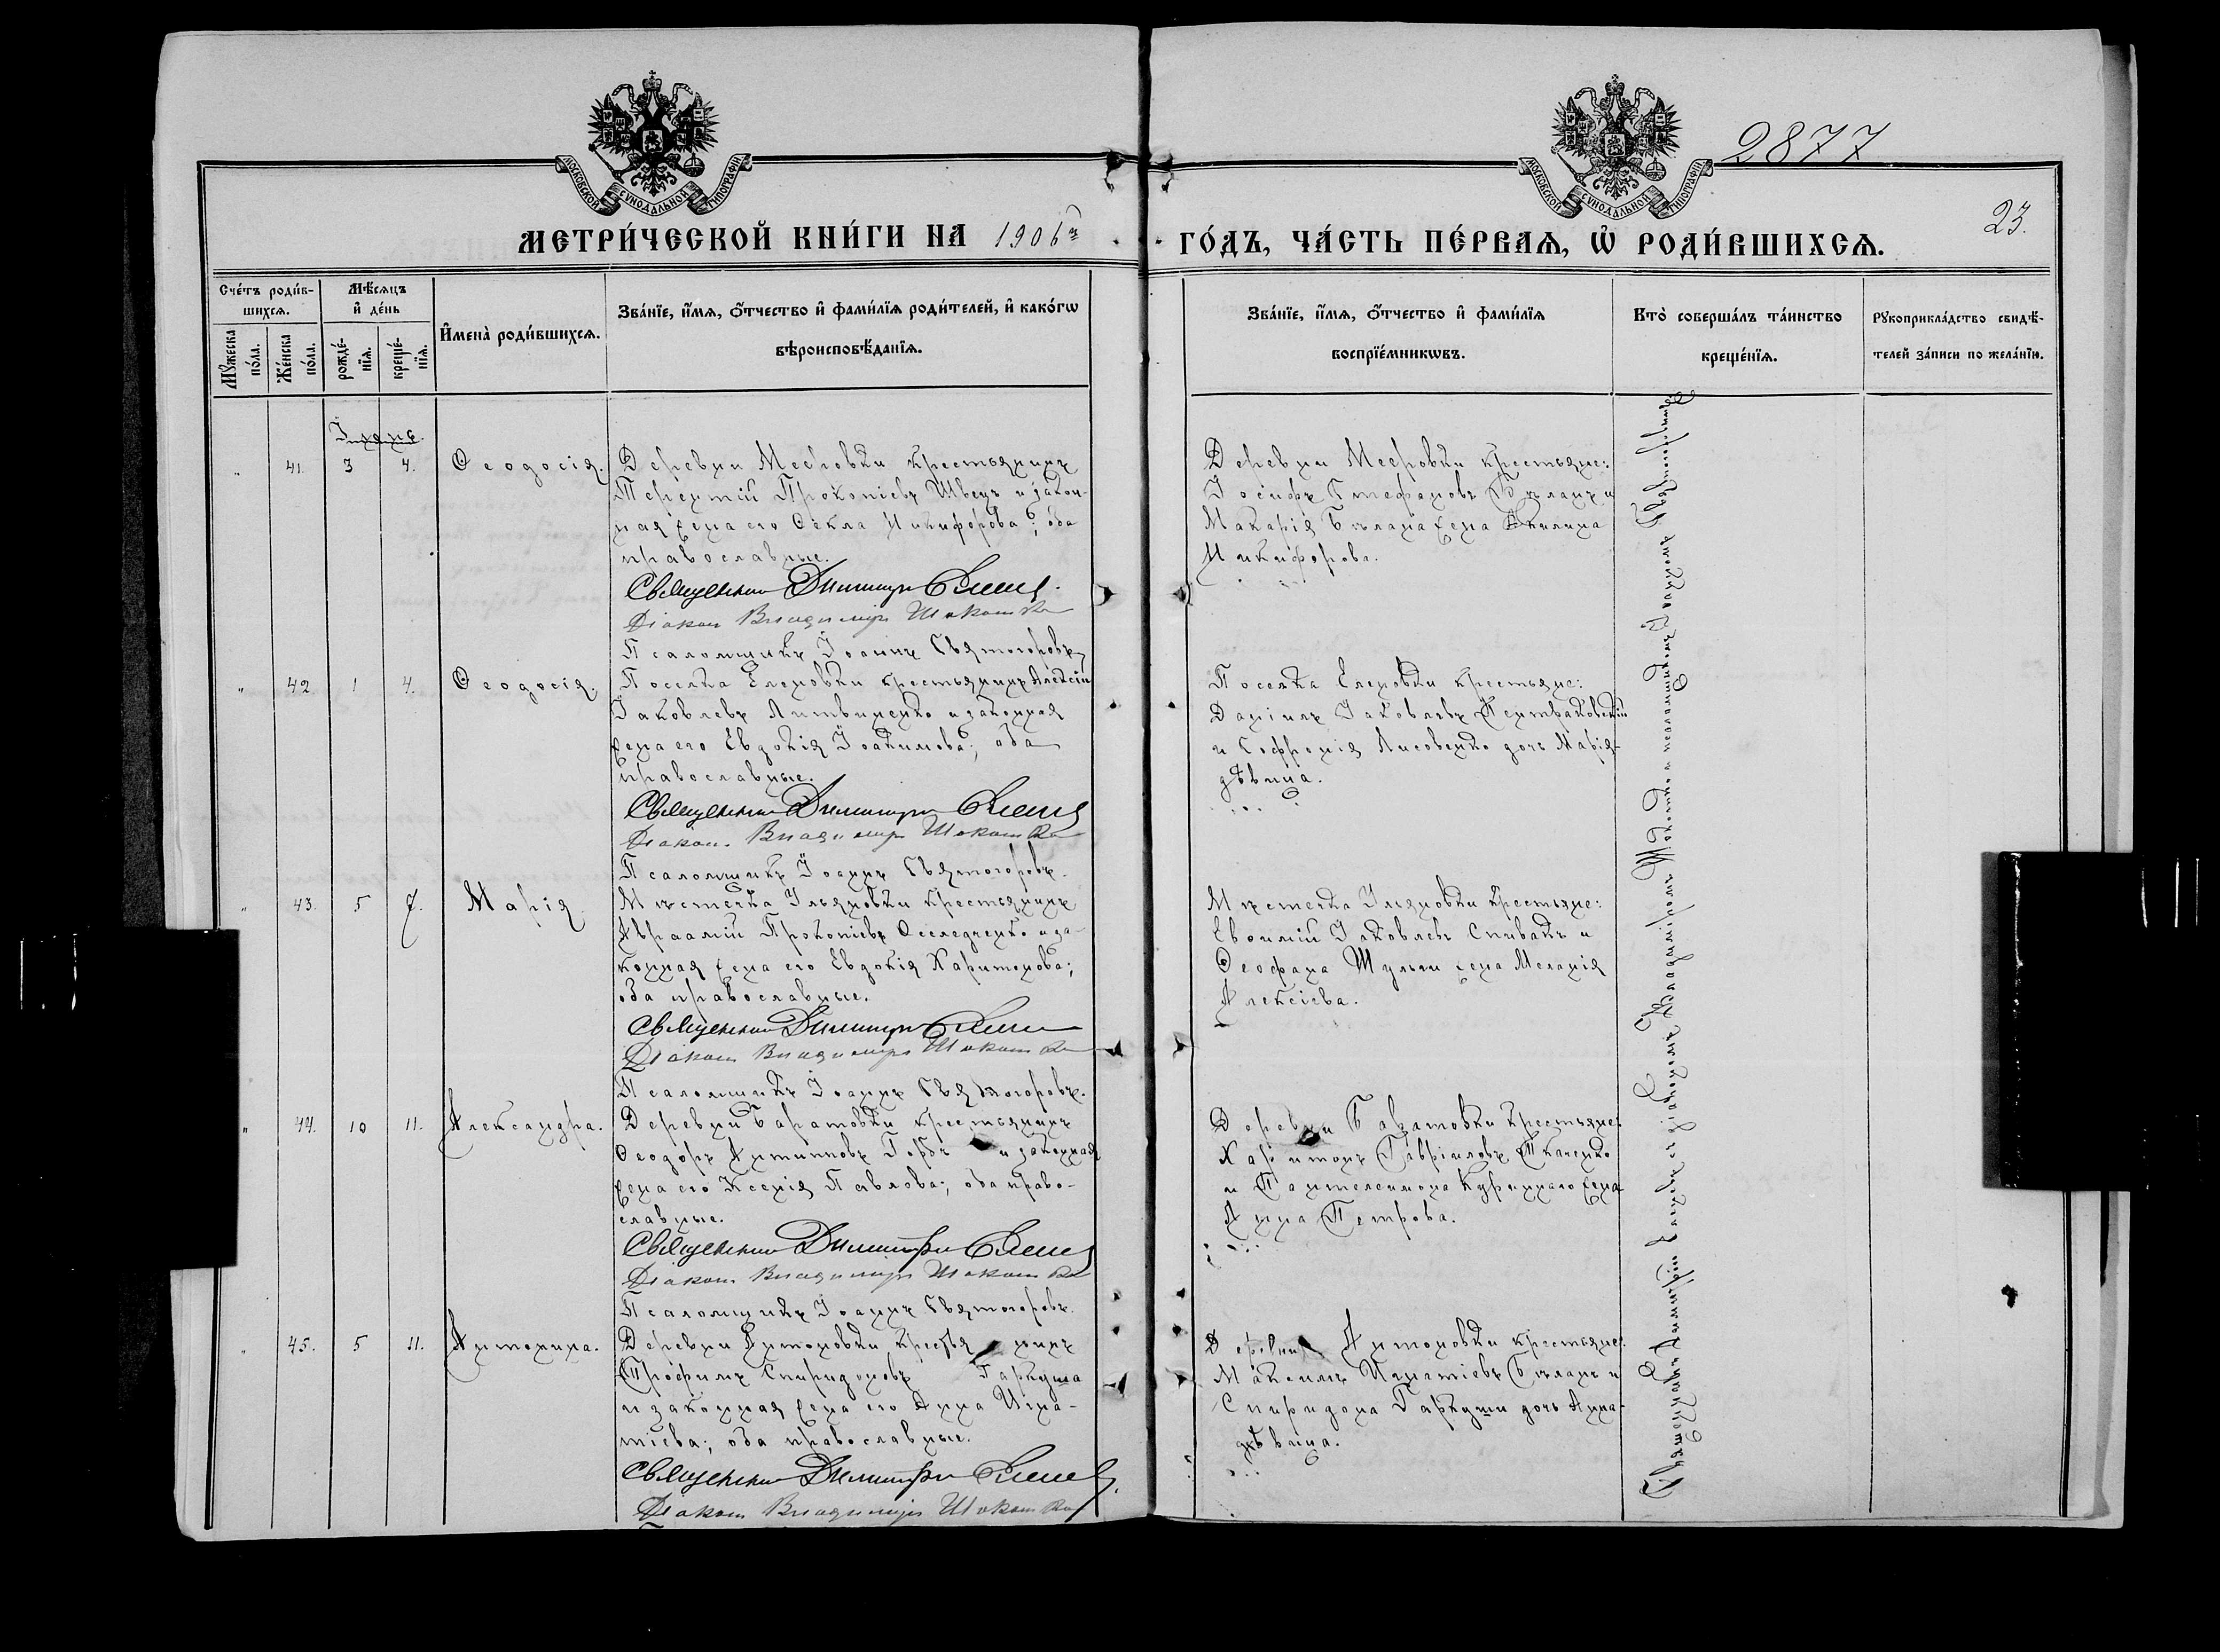 2877
23.
МОСКОВСКОЙ СѴНОДАЛЬНОЙ ТИПОГРАФІИ
МОСКОВСКОЙ СѴНОДАЛЬНОЙ ТИПОГРАФІИ
МЕТРИ́ЧЕСКОЙ КНИ́ГИ НА 1906й
ГО́ДЪ, ЧА́СТЬ ПЕ́РВАѦ, Ѡ҆ РОДИ́ВШИХСѦ.
Сче́тъ роди́в-
шихсѧ.
Мꙋжеска
по́ла.
Же́нска
по́ла.
Мѣ́сѧцъ
и҆ де́нь
рожде́-
нїѧ.
креще́-
нїѧ.
И҆мена̀ роди́вшихсѧ.
Зва́нїе, и҆́мѧ, ѻ҆́тчество и҆ фами́лїѧ роди́телей, и҆ како́гѡ
вѣроисповѣ́данїѧ.
Зва́нїе, и҆́мѧ, ѻ҆́тчество и҆ фами́лїѧ
воспрїе́мникѡвъ.
Кто̀ соверша́лъ та́инство
креще́нїѧ.
Рꙋкоприкла́дство свидѣ́-
телей за́писи по жела́нїю.
" 41. 3 4. Ѳеодосія.
Деревни Мееровки крестьянинъ
Терентій Прокопіевъ Швецъ и закон-
ная жена его Ѳекла Никифорова; оба
православные.
Священник Димитрій
Діакон Владимиръ
Псаломщикъ Іоаннъ Святогоровъ
Деревни Мееровки крестьяне:
Іосифъ Стефановъ Бѣланъ и
Макарія Бѣлана жена Акилина
Никифорова.
" 42 1 4. Ѳеодосія.
Поселка Еленовки крестьянинъ Алексій
Іаковлевъ Литвиненко и законная
жена его Евдокія Іоакимова; оба
православные.
Священник Димитрій
Діакон Владимиръ
Псаломщикъ Іоаннъ Святогоровъ.
Поселка Еленовки крестьяне:
Даніилъ Іаковлевъ
и Софронія Лисовенко дочь Марія-
дѣвица.
" 43. 5 7. Марія
Мѣстечка Ульяновки крестьянинъ
Авраамій Прокопіевъ Оселедченко и за-
конная жена его Евдокія Харитонова;
оба православные.
Священник Димитрій
Діакон Владимиръ
Псаломщикъ Іоаннъ Святогоровъ.
Мѣстечка Ульяновки крестьяне:
Евѳимій Іаковлевъ Спивакъ и
Ѳеофана Шульги жена Меланія
Алексіева.
" 44. 10 11. Александра.
Деревни Баратовки крестьянинъ
Ѳеодоръ Антиповъ и законная
жена его Ксенія Павлова; оба право-
славные.
Священник Димитрій
Діакон Владимиръ
Псаломщикъ Іоаннъ Святогоровъ.
Деревни крестьяне:
Харитонъ Гавріиловъ Ткаченко
и Пантелеимона жена
Анна Петрова.
" 45. 5 11. Антонина.
Деревни Антоновки крестьянинъ
Трофимъ Спиридоновъ Гаркуша
и законная жена его Анна Игна-
тіева; оба православные.
Священник Димитрій
Діакон Владимиръ
Деревни Антоновки крестьяне:
Максимъ Игнатіевъ Бѣланъ и
Спиридона Гаркуши дочь Анна-
дѣвица.
Священникъ Димитрій съ діакономъ Владиміромъ и псаломщикомъ Іоанномъ Святогоровымъ